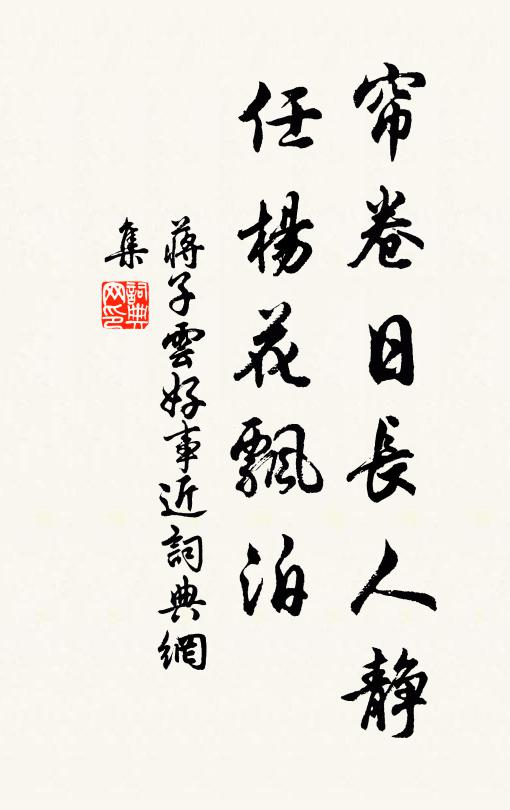 帘卷日長人静
任楊花飄泊
蔣子雲好事近詞典網
集
詞典
网印